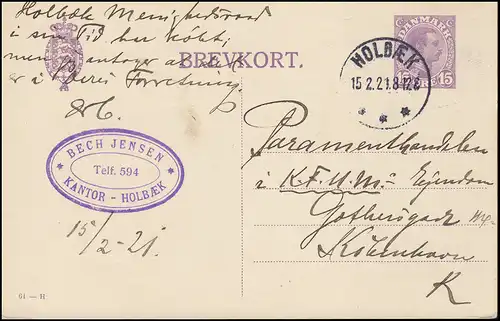 Holbæk Menighedsraad
i sin Tid har købt,
men antager at
er i Deres Forretning.
BREVKORT.
DANMARK
15 ØRE 15
HOLBÆK
15.2.21.8-12F
* * *
BECH JENSEN
* Telf. 594 *
KANTOR - HOLBÆK
15/2-21.
Paramenthandelen
i K.F.U.M.s Ejendom
Gothersgade
København
K
61 — H